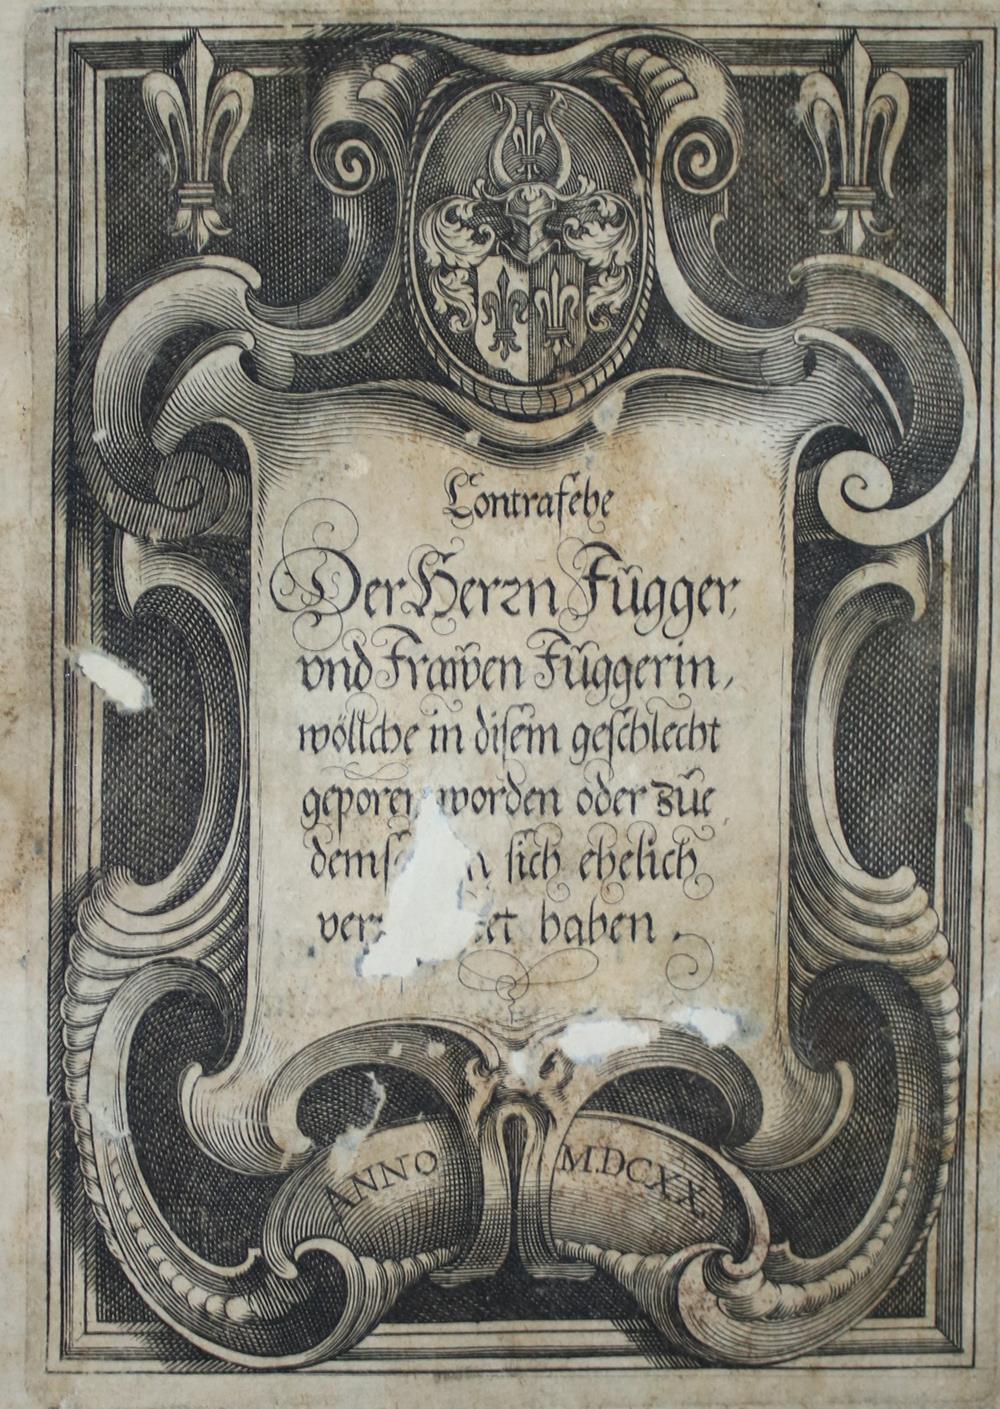 Contrafehe
Der Herzn Függer,
vnd Frawen Függerin,
wöllche in disem geschlecht
geporen worden oder züe
sich ehelich
haben.
ANNO M.DCXX.